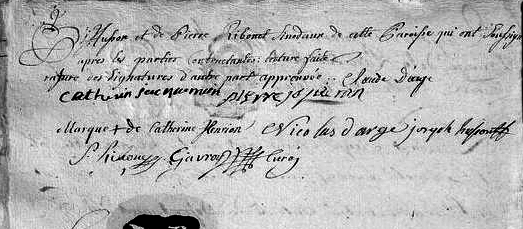 Husson et de Pierre Ribonet sindaux de cette Paroisse qui ont soussigné
après les parties contractantes lecture faite
rature des signatures d'autre part approuvée Claude D'arge
Catherin Jacquemin pierre jaquemin
Marque + de Catherine Henrion Nicolas darge joseph husson
Curé